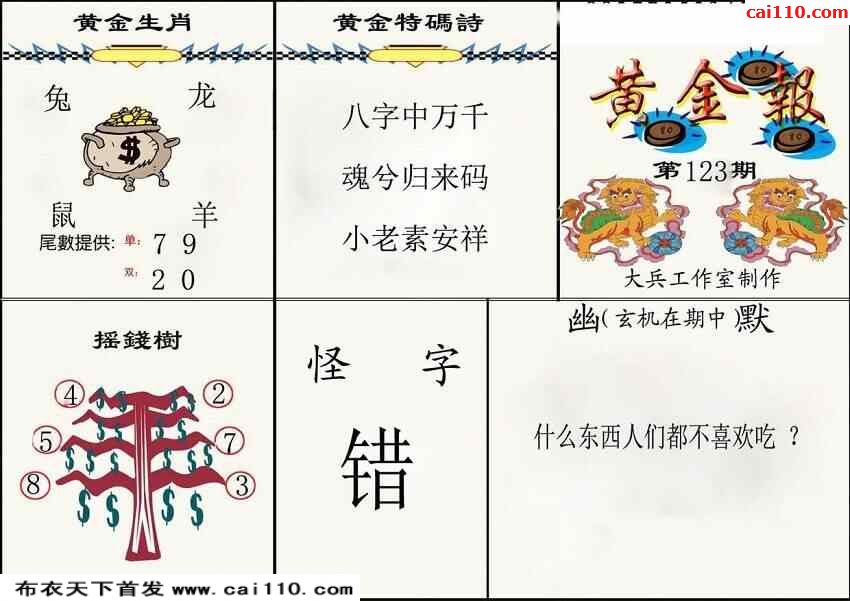 cai110.com
黄金生肖
兔 龙
$
鼠 羊
尾數提供: 单: 7 9
双: 2 0
黄金特碼詩
八字中万千
魂兮归来码
小老素安祥
黄金報
第123期
大兵工作室制作
摇錢樹
④ ②
⑤ ⑦
⑧ ③
怪 字
错
幽(玄机在期中)默
什么东西人们都不喜欢吃 ？
布衣天下首发 www.cai110.com